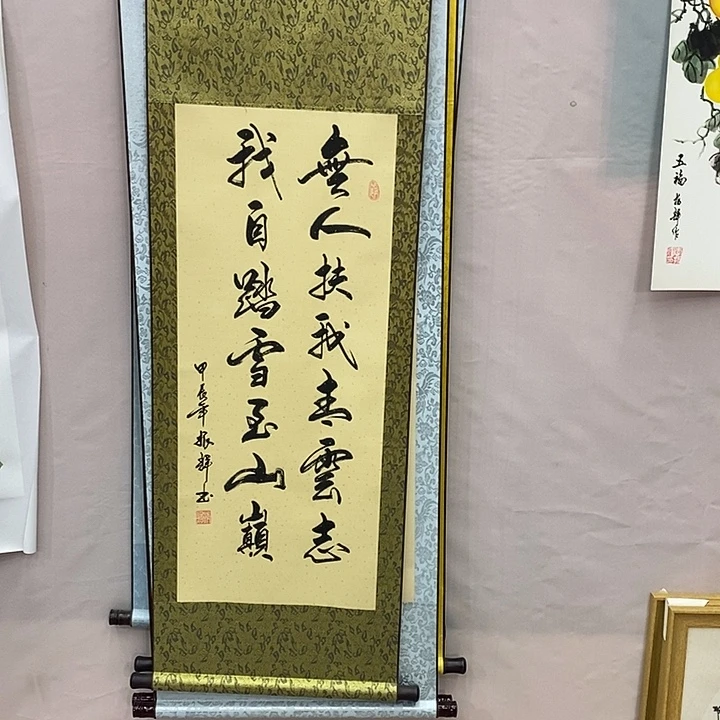 無人扶我青雲志
我自踏雪至山巔
甲辰年振輝書
五福